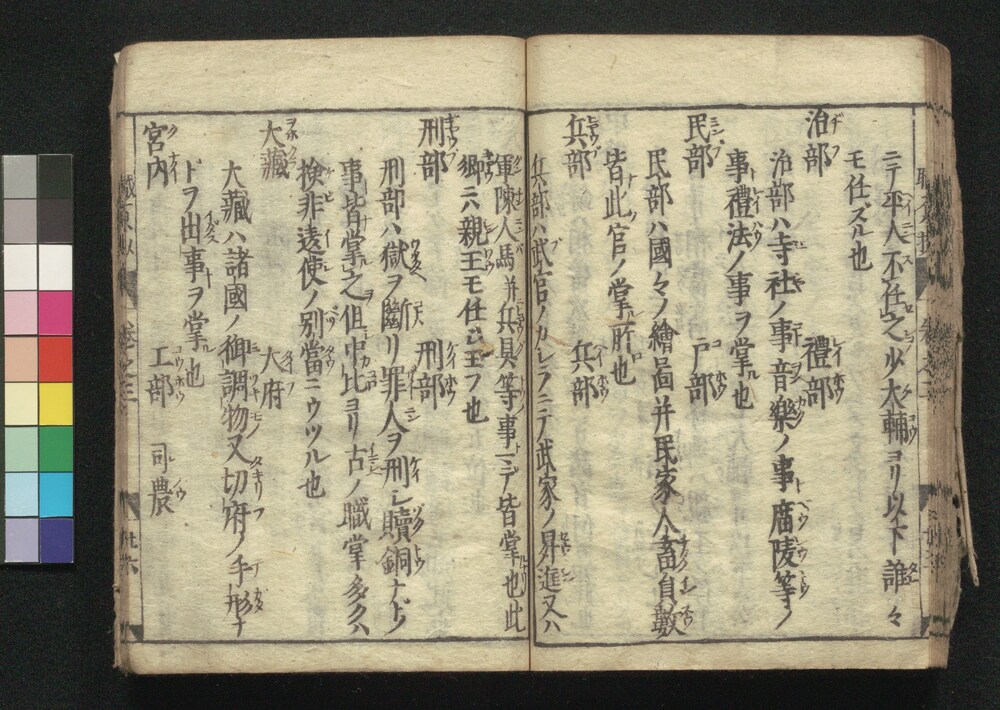 ニテ平人不任之少大輔ヨリ以下誰々
モ任ズル也
治部 禮部
治部ハ寺社ノ事音樂ノ事廟陵等ノ
事禮法ノ事ヲ掌也
民部 戸部
民部ハ國々ノ繪啚并民家人畜員數
皆此官ノ掌所也
兵部 兵部
兵部ハ武官ノカシラニテ武家ノ昇進又ハ
軍陳人馬并兵具等事ニテ皆掌也此
卿ニハ親王モ任ジ玉フ也
刑部 刑部
刑部ハ獄ヲ斷リ罪人ヲ刑シ贖銅ナドノ
事皆掌之但中比ヨリ古ノ職掌多クハ
檢非違使ノ別當ニウツル也
大藏 大府
大藏ハ諸國ノ御調物又切府ノ手形ナ
ドヲ出事ヲ掌也
宮内 工部 司農